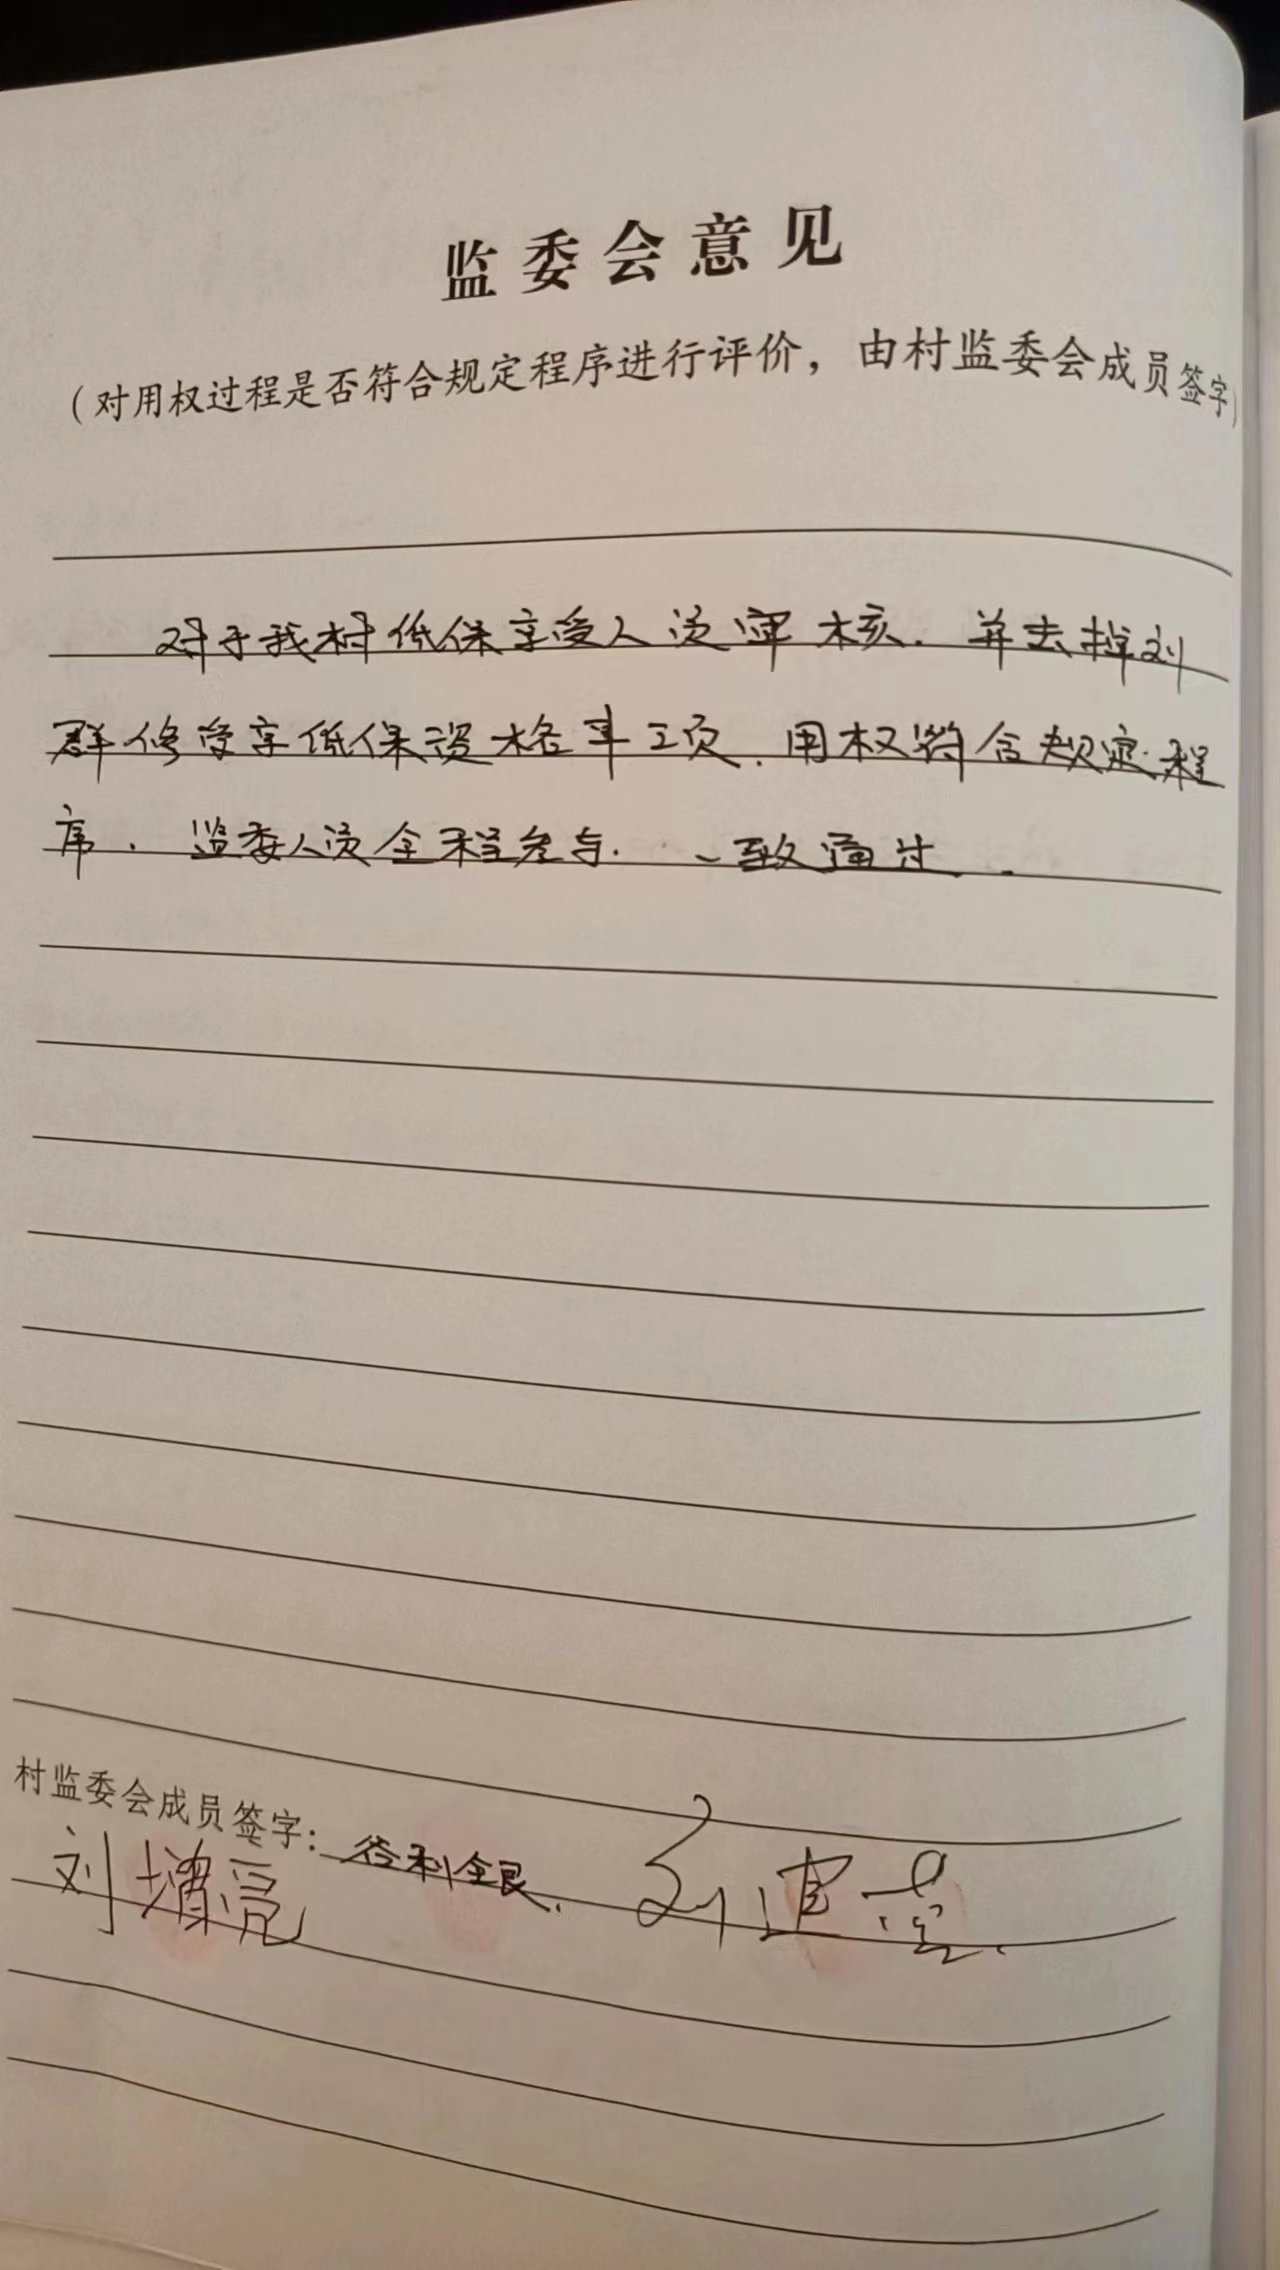 监委会意见
（对用权过程是否符合规定程序进行评价，由村监委会成员签字）
对于我村低保享受人员审核．并去掉刘
群修享享低保资格事项．用权符合规定程
序．监委人员全程参与．一致通过．
村监委会成员签字：谷利全良．刘建
刘增亮